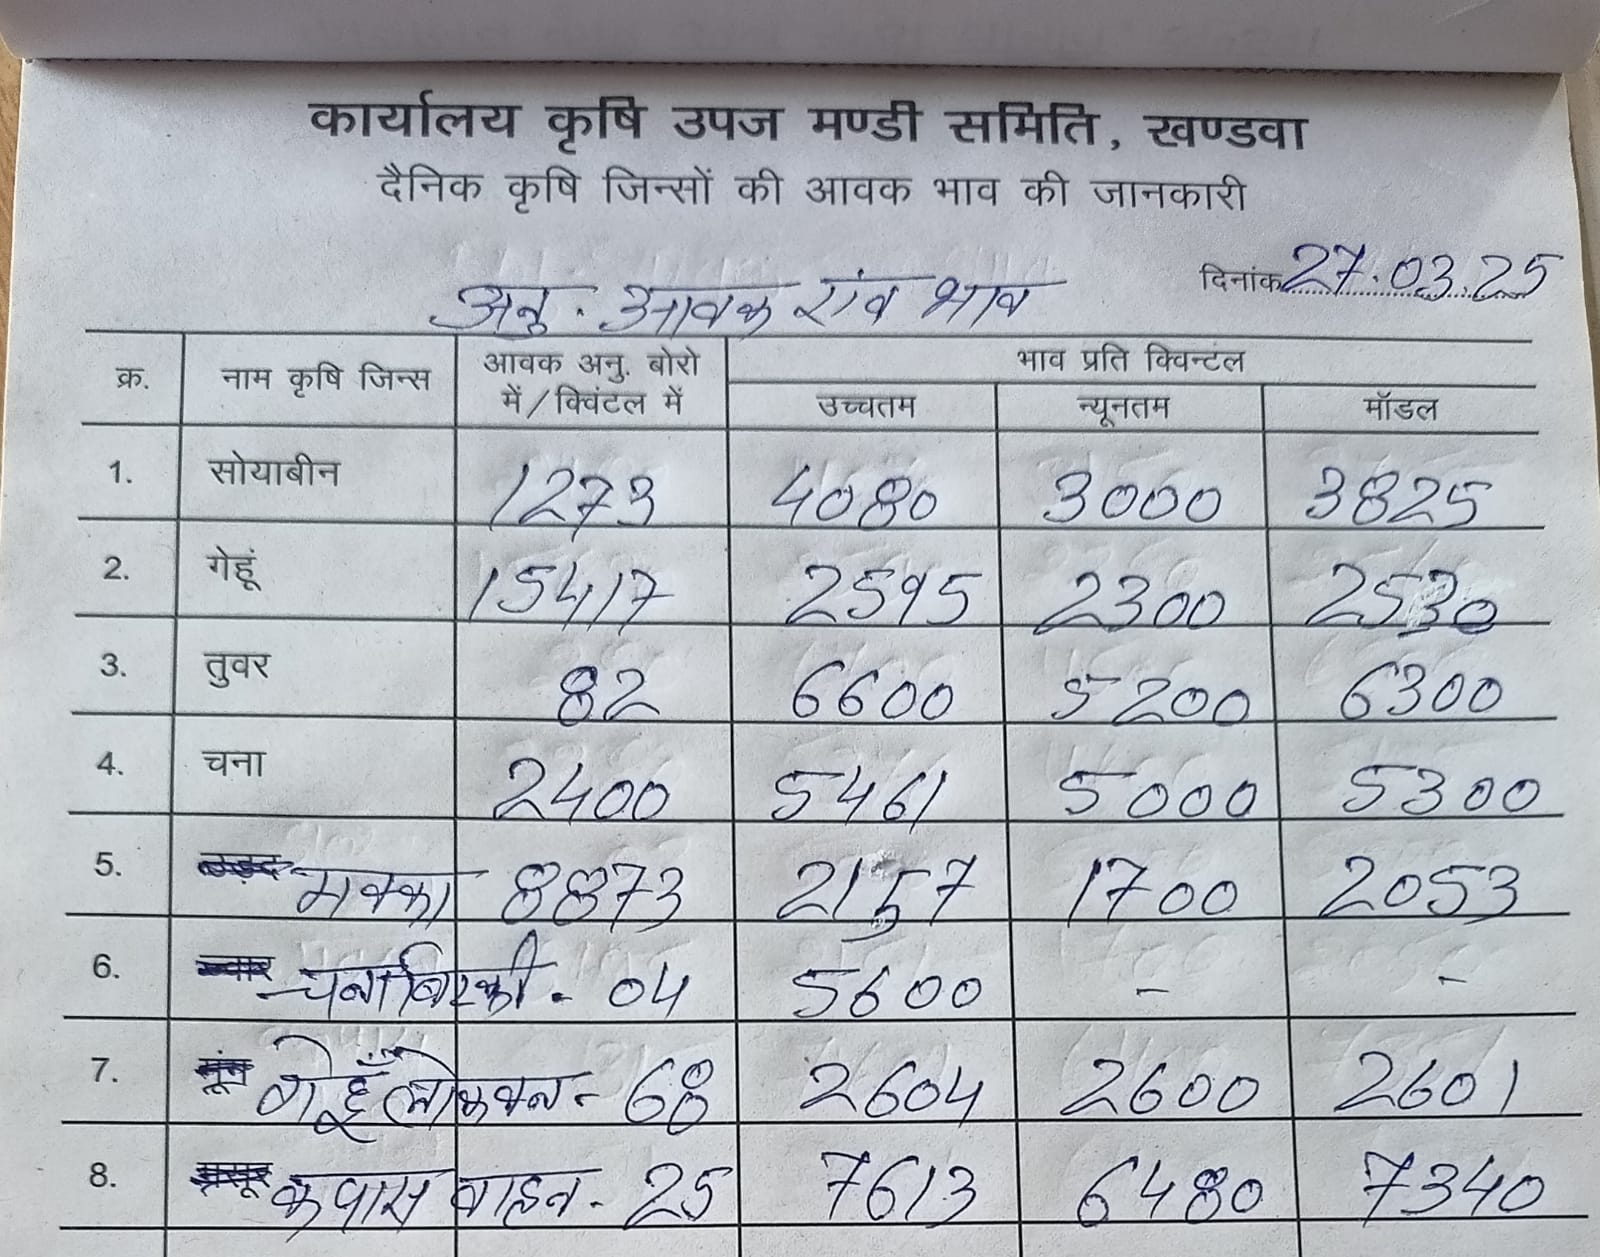 कार्यालय कृषि उपज मण्डी समिति, खण्डवा
दैनिक कृषि जिन्सों की आवक भाव की जानकारी
दिनांक 27.03.25
अनु. आवक एंव भाव
क्र. नाम कृषि जिन्स आवक अनु. बोरो में/क्विंटल में भाव प्रति क्विन्टल
उच्चतम न्यूनतम मॉडल
1. सोयाबीन 1273 4080 3000 3825
2. गेहूं 15417 2595 2300 2530
3. तुवर 82 6600 5200 6300
4. चना 2400 5461 5000 5300
5. मक्का 8873 2157 1700 2053
6. चना बिटकी - 04 5600 - -
7. गेहूँ लोकवन - 68 2604 2600 2601
8. कपास वाहन - 25 7613 6480 7340